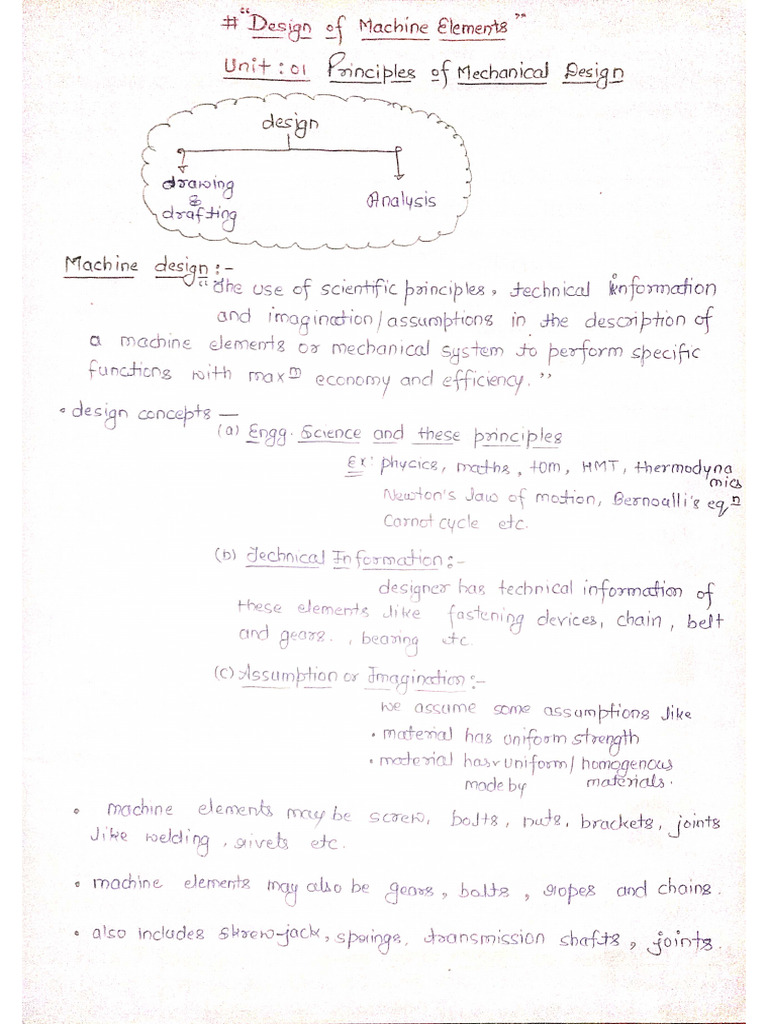 # "Design of Machine Elements"
Unit : 01 Principles of Mechanical Design
design
drawing
&
drafting
Analysis
Machine design :-
"the use of scientific principles, technical information
and imagination/assumptions in the description of
a machine elements or mechanical system to perform specific
functions with maxᵐ economy and efficiency."
• design concepts —
(a) Engg. Science and these principles
Ex: phycics, maths, TOM, HMT, thermodyna
mics
Newton's law of motion, Bernoalli's eqⁿ
Carnot cycle etc.
(b) Technical Information :-
designer has technical information of
these elements like fastening devices, chain, belt
and gears. , bearing etc.
(c) Assumption or Imagination :-
we assume some assumptions like
• material has uniform strength
• material has uniform/homogenous
made by materials.
• machine elements may be screw, bolts, nuts, brackets, joints
like welding, rivets etc.
• machine elements may also be gears, bolts, ropes and chains.
• also includes skrew-jack, springs, transmission shafts, joints.